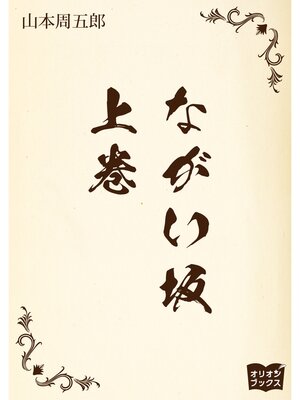 山本周五郎
ながい坂
上巻
オリオン
ブックス